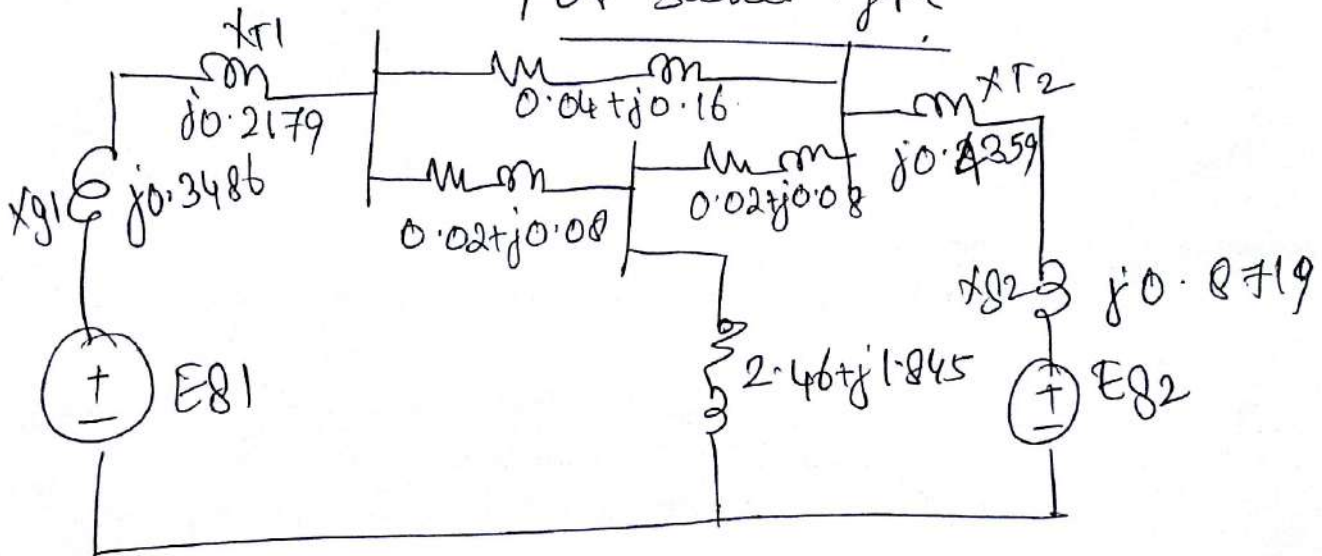 XT1
j0.2179
0.04+j0.16
XT2
j0.4359
Xg1
j0.3486
0.02+j0.08
0.02+j0.08
Xg2
j0.8719
Eg1
2.46+j1.845
Eg2